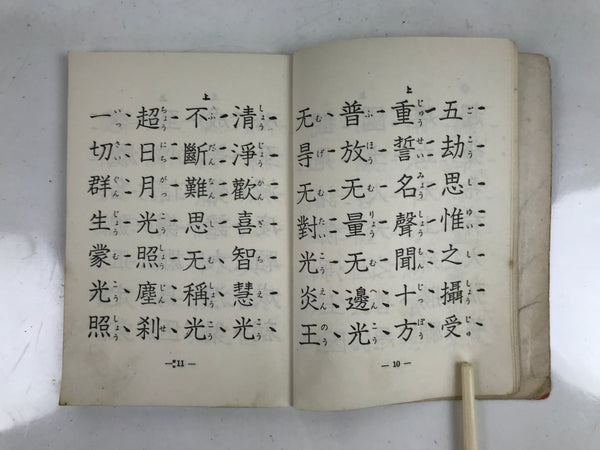 上
五劫思惟之攝受
重誓名聲聞十方
普放无量无邊光
无㝵无對光炎王
— 10 —
上
清淨歡喜智慧光
不斷難思无稱光
超日月光照塵刹
一切群生蒙光照
— 11 —